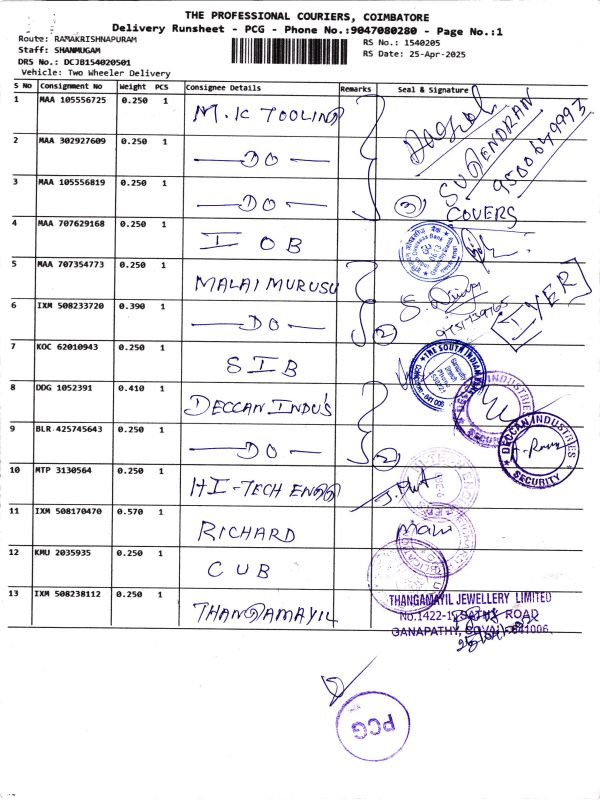 THE PROFESSIONAL COURIERS, COIMBATORE
Delivery Runsheet - PCG - Phone No.:9047080280 - Page No.:1
Route: RAMAKRISHNAPURAM
RS No.: 1540205
Staff: SHANMUGAM
RS Date: 25-Apr-2025
DRS No.: DCJB154020501
Vehicle: Two Wheeler Delivery
S No Consignment No Weight PCS Consignee Details Remarks Seal & Signature
1 MAA 105556725 0.250 1 M.K TOOLING
SUGENDRAN
9500649993
2 MAA 302927609 0.250 1 —DO—
3 MAA 105556819 0.250 1 —DO— 3 COVERS
4 MAA 707629168 0.250 1 I O B
5 MAA 707354773 0.250 1 MALAI MURUSU
6 IXM 508233720 0.390 1 —DO— 2 IYER
7 KOC 62010943 0.250 1 S I B
THE SOUTH INDIAN
8 DDG 1052391 0.410 1 DECCAN INDU'S
DECCAN INDUSTRIES
SECURITY
9 BLR 425745643 0.250 1 —DO— 2
DECCAN INDUSTRIES
SECURITY
10 MTP 3130564 0.250 1 HI-TECH ENGG
11 IXM 508170470 0.570 1 RICHARD
12 KMU 2035935 0.250 1 C U B
13 IXM 508238112 0.250 1 THANGAMAYIL
THANGAMAYIL JEWELLERY LIMITED
No.1422-1, SATHY ROAD
GANAPATHY, COVAI - 641006.
PCG